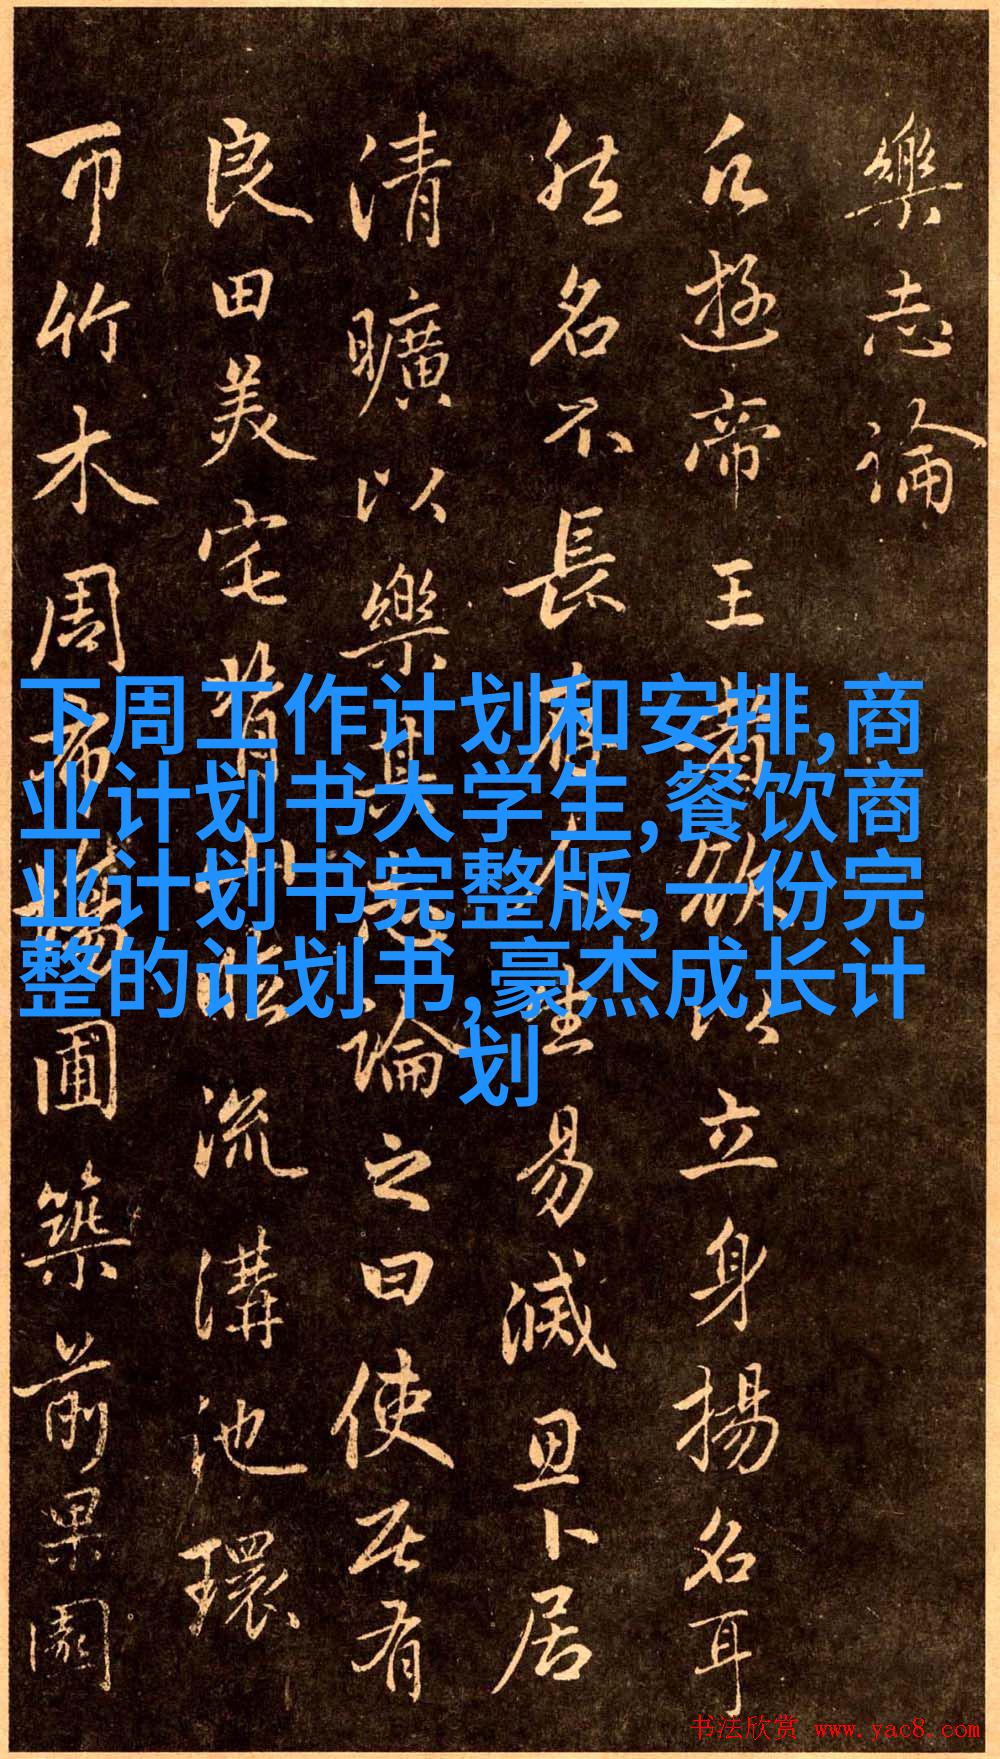 樂志論
凡遊帝王者欲以立身揚名耳
然名不長存人生易滅思卜居
清曠以樂其志論之曰使居有
良田美宅背山臨流溝池環
帀竹木周布場圃築前果園
下周工作计划和安排,商
业计划书大学生,餐饮商
业计划书完整版,一份完
整的计划书,豪杰成长计
划
书法欣赏 www.yac8.com